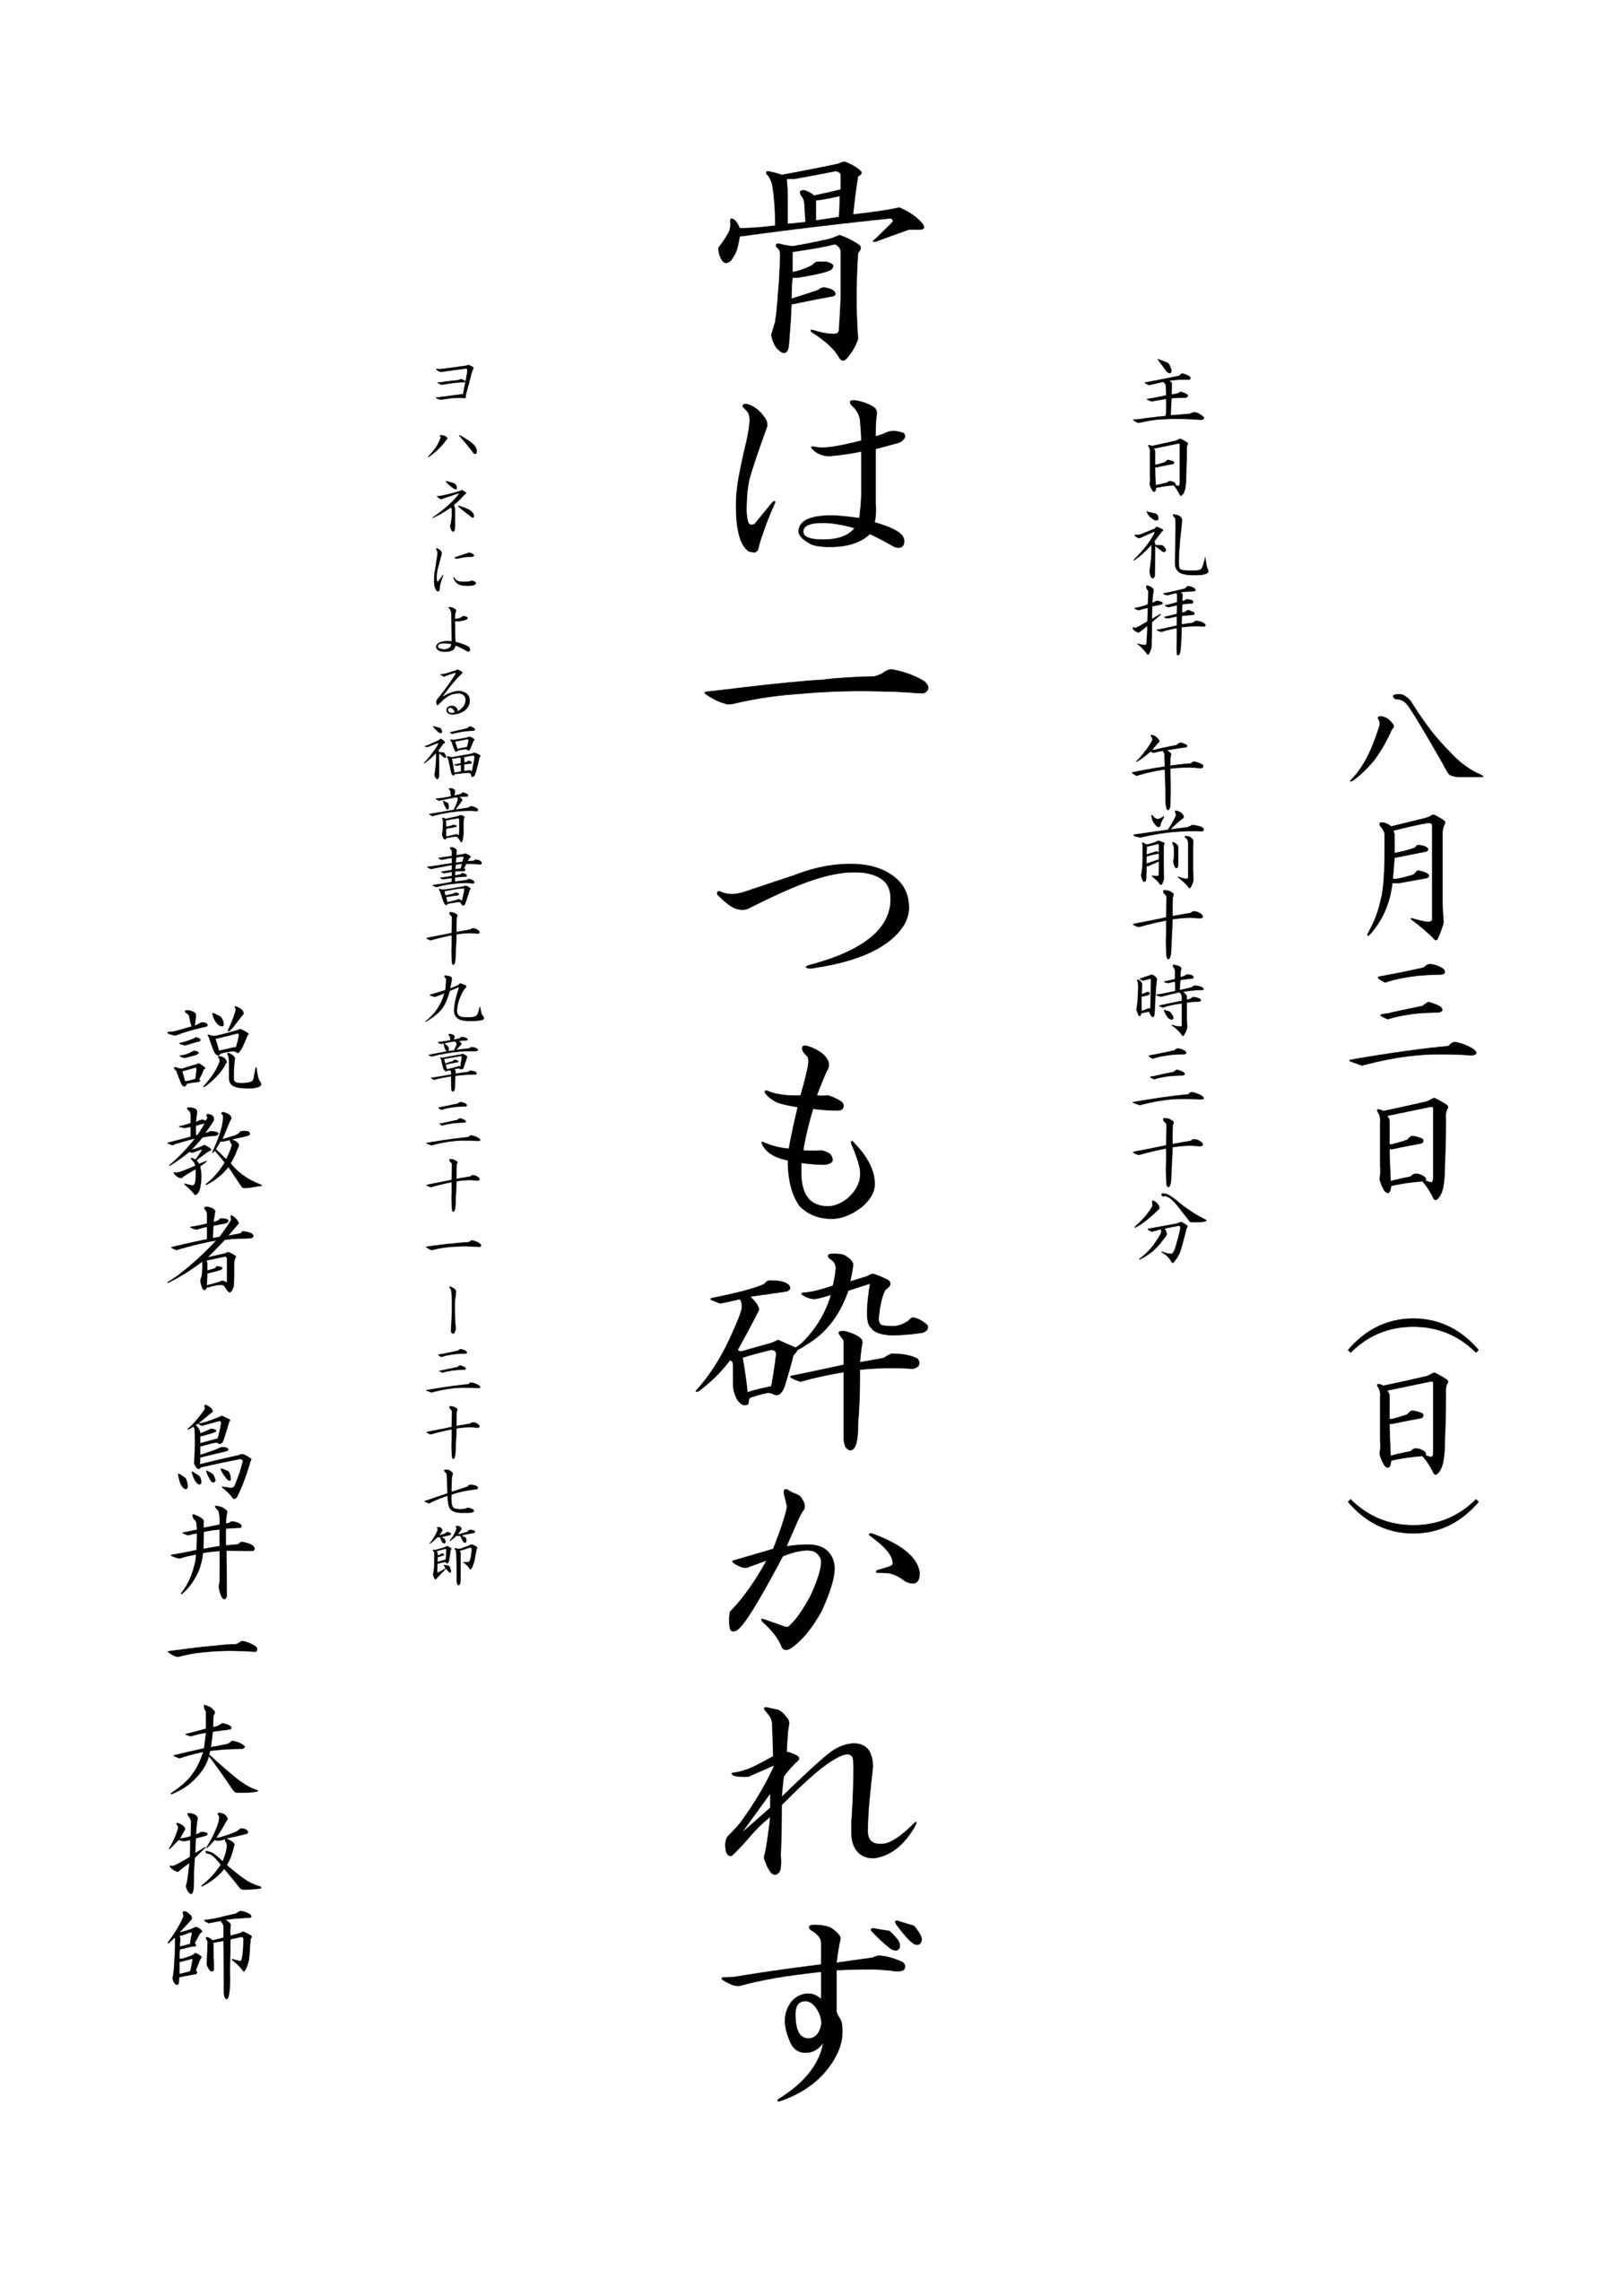 八月三日 (日)
主日礼拝 午前十時三十分
骨は一つも砕かれず
ヨハネによる福音書十九章三十一―三十七節
説教者 鳥井一夫牧師